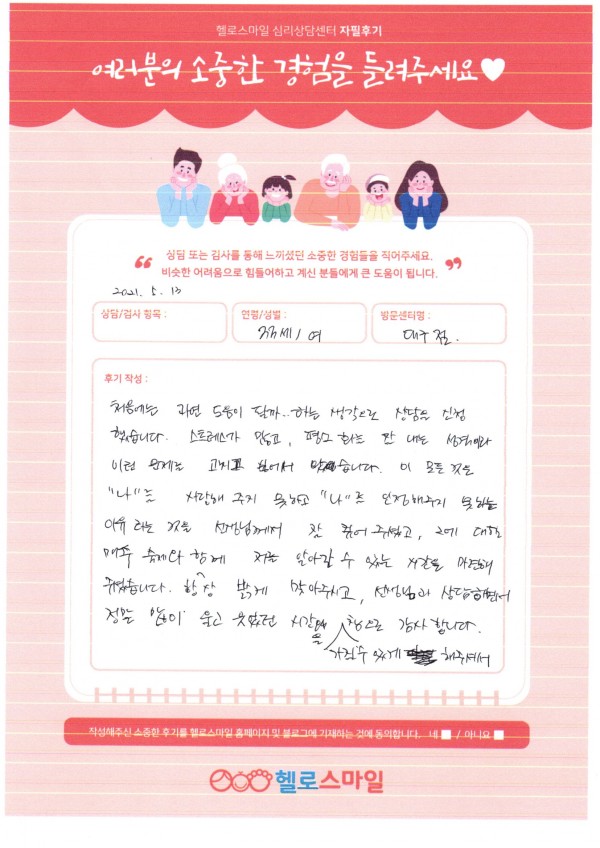 헬로스마일 심리상담센터 자필후기
여러분의 소중한 경험을 들려주세요♥
“ 상담 또는 검사를 통해 느끼셨던 소중한 경험들을 적어주세요.
비슷한 어려움으로 힘들어하고 계신 분들에게 큰 도움이 됩니다. ”
2021. 5. 13
상담/검사 항목 :
연령/성별 :
33세 / 여
방문센터명 :
대구 점.
후기 작성 :
처음에는 과연 도움이 될까..하는 생각으로 상담을 신청
했습니다. 스트레스가 많고, 평소 화는 잘 내는 성격이라
이런 문제를 고치고 싶어서 왔습니다. 이 모든 것을
"나"를 사랑해 주지 못하고 "나"를 인정해주지 못하는
이유 라는 것을 선생님께서 잘 짚어 주셨고, 그에 대한
매주 숙제와 함께 저를 알아갈 수 있는 시간을 마련해
주셨습니다. 항상 밝게 맞아주시고, 선생님과 상담하면서
정말 많이 울고 웃었던 시간을 가질수 있게 해주셔서 참으로 감사 합니다.
작성해주신 소중한 후기를 헬로스마일 홈페이지 및 블로그에 기재하는 것에 동의합니다. 네 ■ / 아니요 ■
헬로스마일